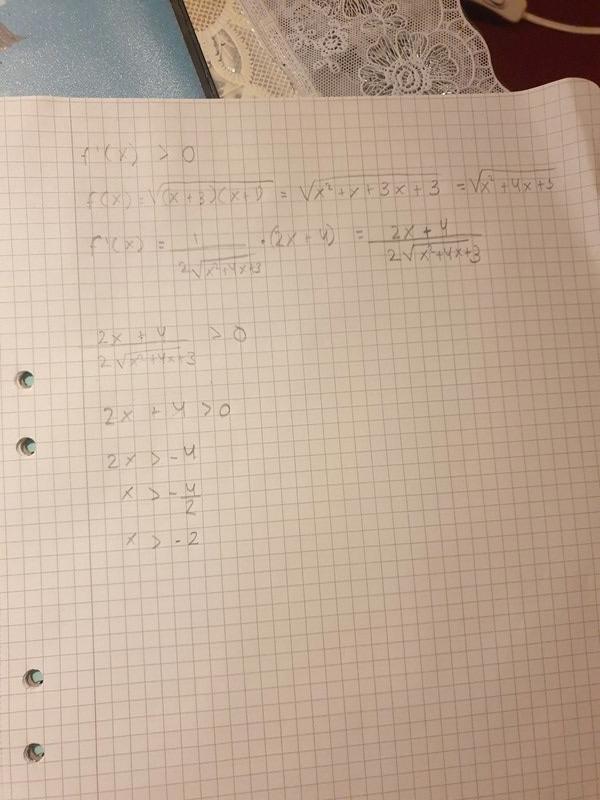 f'(x) > 0
f(x) = √(x+3)(x+1) = √x²+x+3x+3 = √x²+4x+3
f'(x) = 1/2√x²+4x+3 · (2x+4) = 2x+4/2√x²+4x+3
2x+4/2√x²+4x+3 > 0
2x + 4 > 0
2x > -4
x > -4/2
x > -2